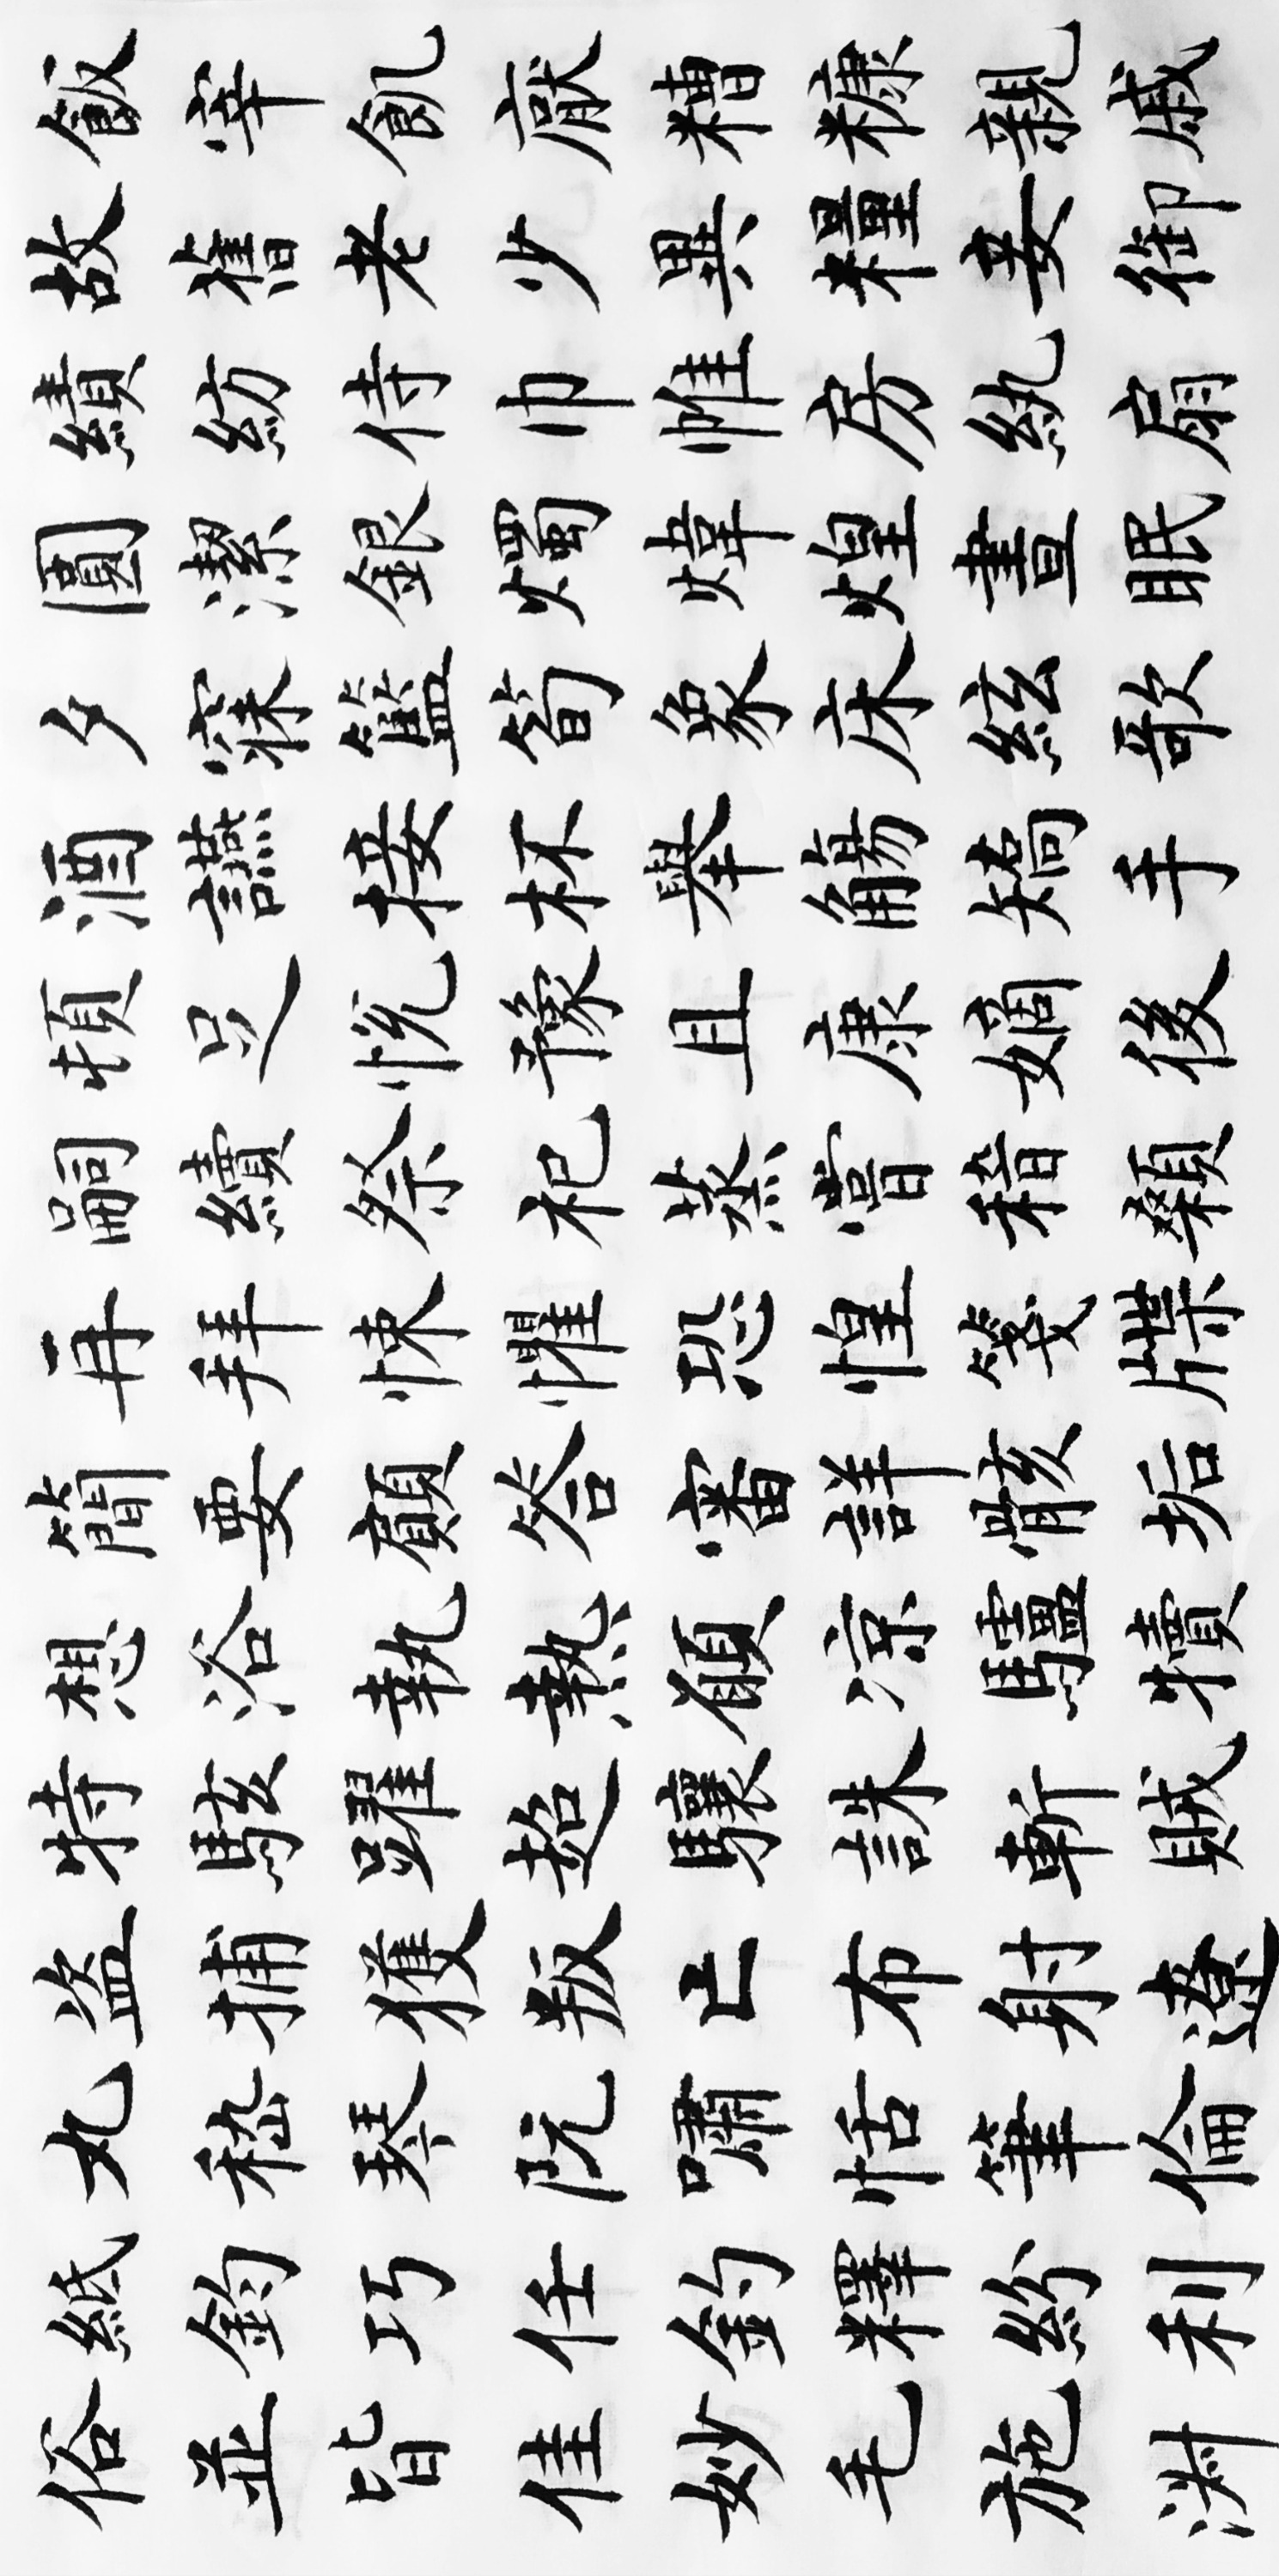 飯宰飢厭糟糠親戚
故舊老少異糧妾御
績紡侍巾帷房紈扇
圓潔銀燭煒煌晝眠
夕寐籃筍象床絃歌
酒讌接杯舉觴矯手
頓足悅豫且康嫡後
嗣續祭祀蒸嘗稽顙
再拜悚懼恐惶箋牒
簡要顧答審詳骸垢
想浴執熱願凉驢犢
特駭躍超驤誅斬賊
盜捕獲叛亡布射遼
丸嵇琴阮嘯恬筆倫
紙鈞巧任釣釋紛利
俗並皆佳妙毛施淑